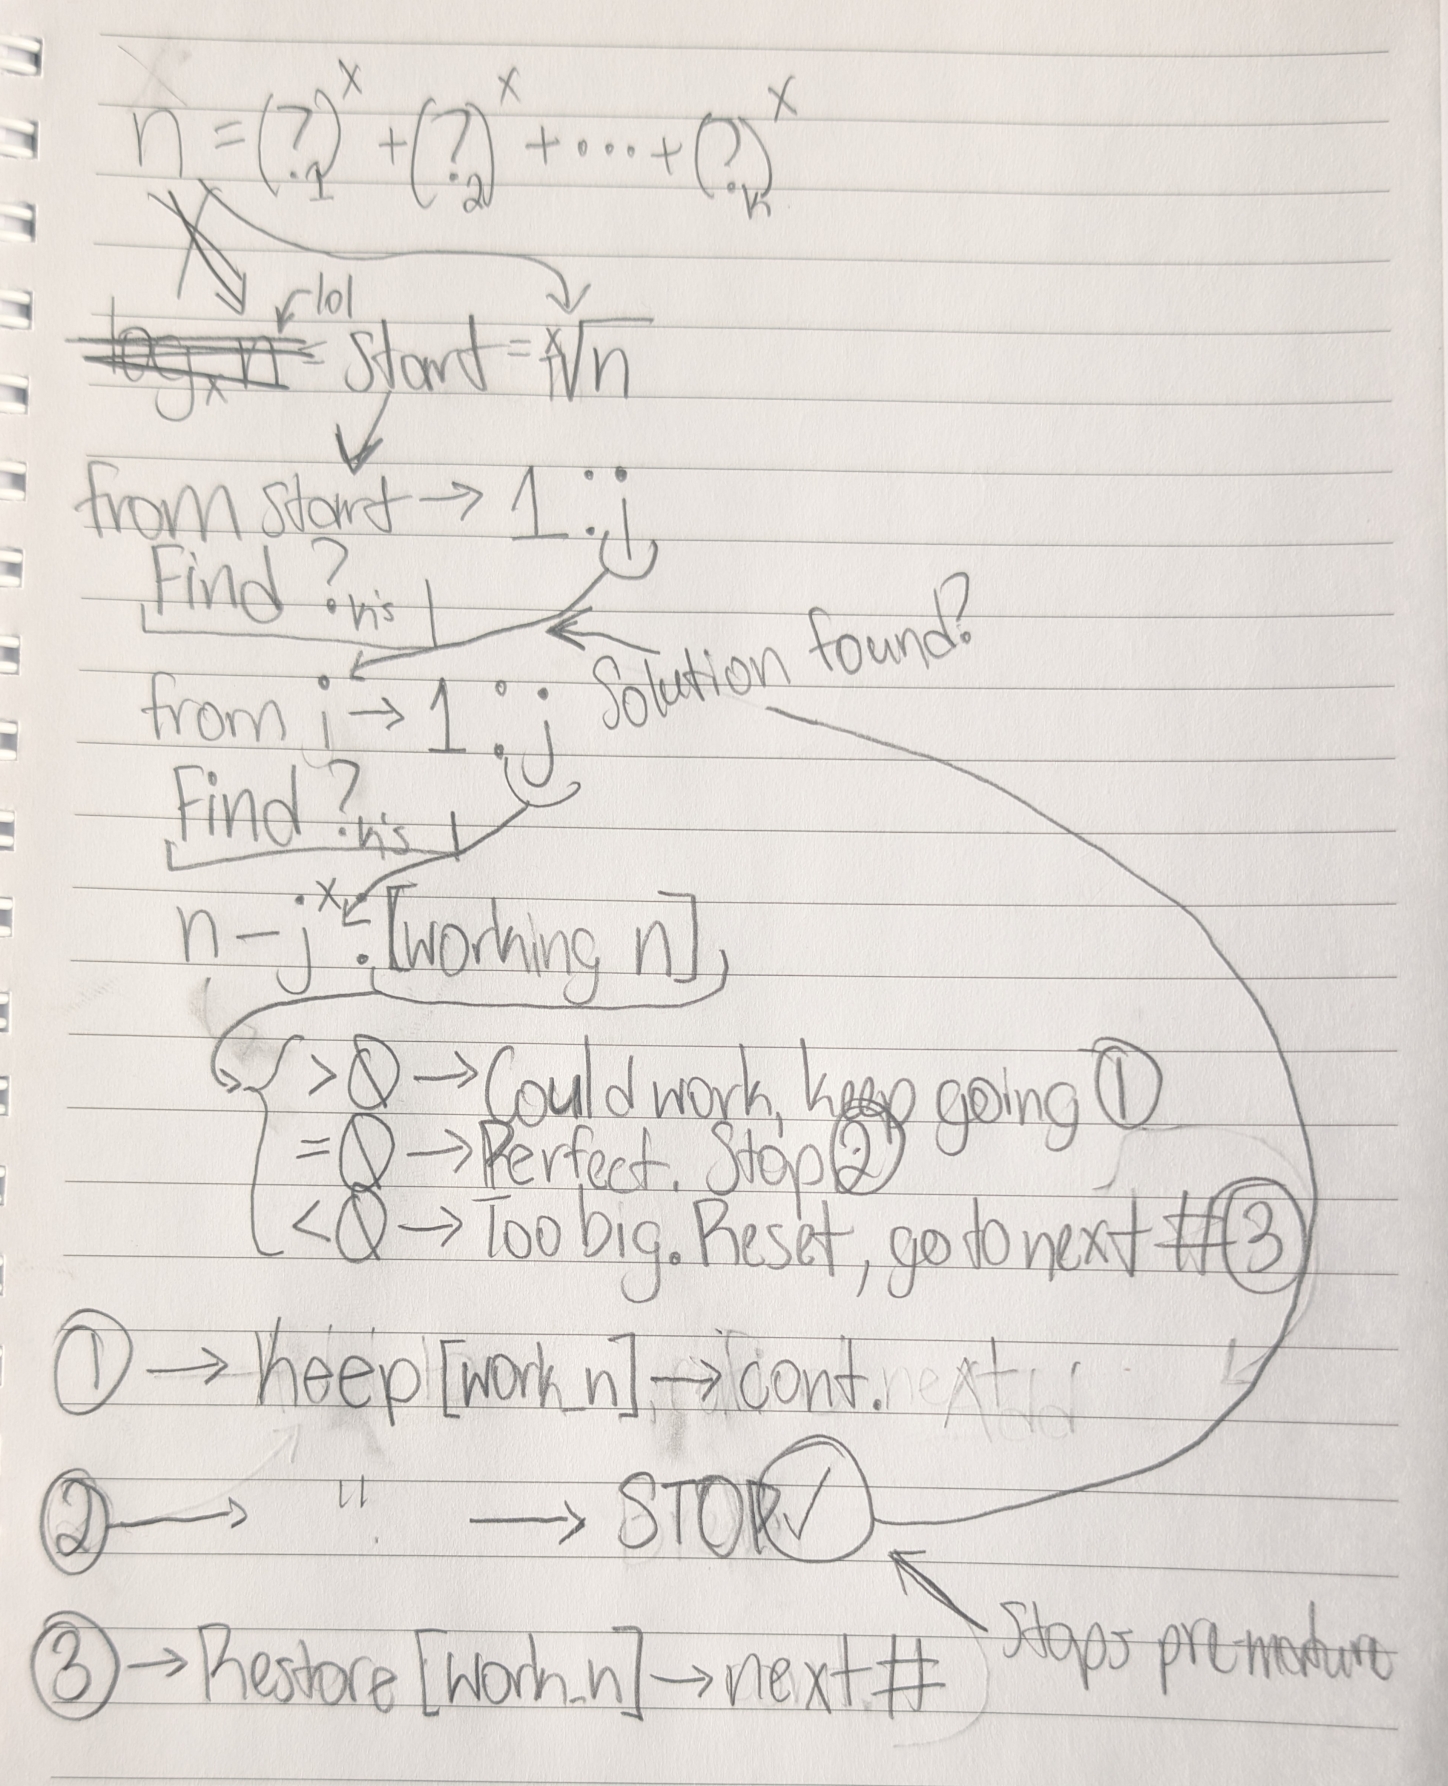 n = (?₁)ˣ + (?₂)ˣ + ···· + (?ₖ)ˣ
lol
logₓ n = Start = ˣ√n
from start → 1 : i
Find ?n's
Solution found?
from i → 1 : j
Find ?n's
n - jˣ : [working n]
> 0 → Could work, keep going ①
= 0 → Perfect. Stop ②
< 0 → Too big. Reset, go to next # ③
① → Keep [work_n] → cont.
② → " → STOP ✓
Stops pre-mature
③ → Restore [work_n] → next #